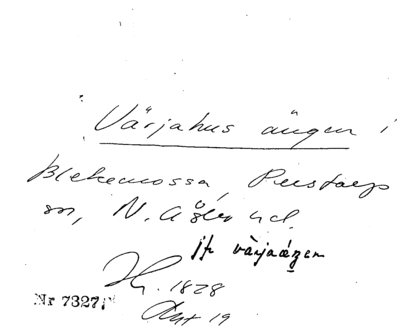 Värjahus ängen i
Blekemossa, Perstorps
sn, N. Åsbo hd.
jfr värjaázen
H. 1828
Akt 19
Nr 7327